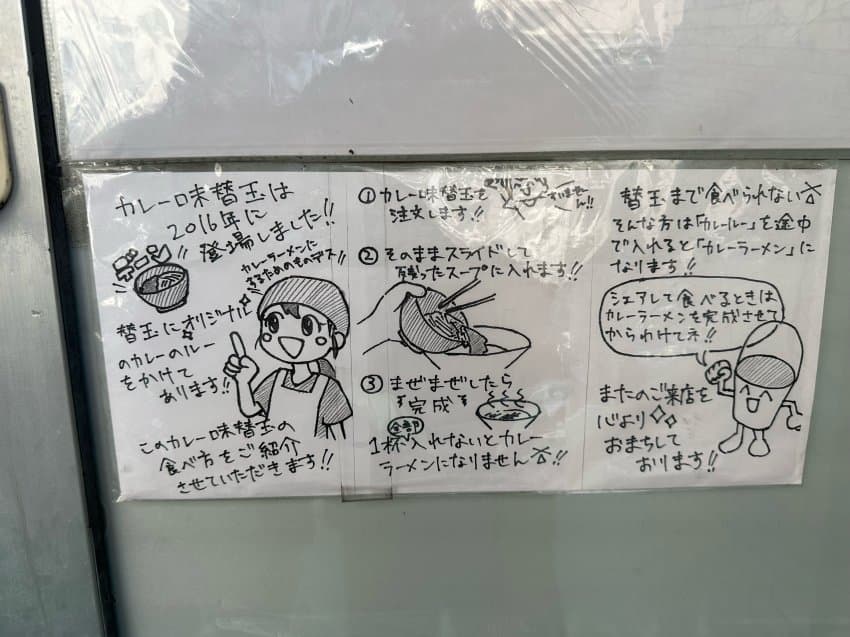 カレー味替玉は
2016年に
登場しました!!
カレーラーメンに
するためのものデス!!
替玉にオリジナル
のカレーのルー
をかけて
あります!!
このカレー味替玉の
食べ方をご紹介
させていただきます!!
① カレー味替玉を
注文します!!
すいませーん!!
② そのままスライドして
残ったスープに入れます!!
③ まぜまぜしたら
完成
全部
1杯入れないとカレー
ラーメンになりません!!
替玉まで食べられない
そんな方は「カレールー」を途中
で入れると「カレーラーメン」に
なります!!
シェアして食べるときは
カレーラーメンを完成させて
からわけてネ!!
またのご来店を
心より
おまちして
おります!!